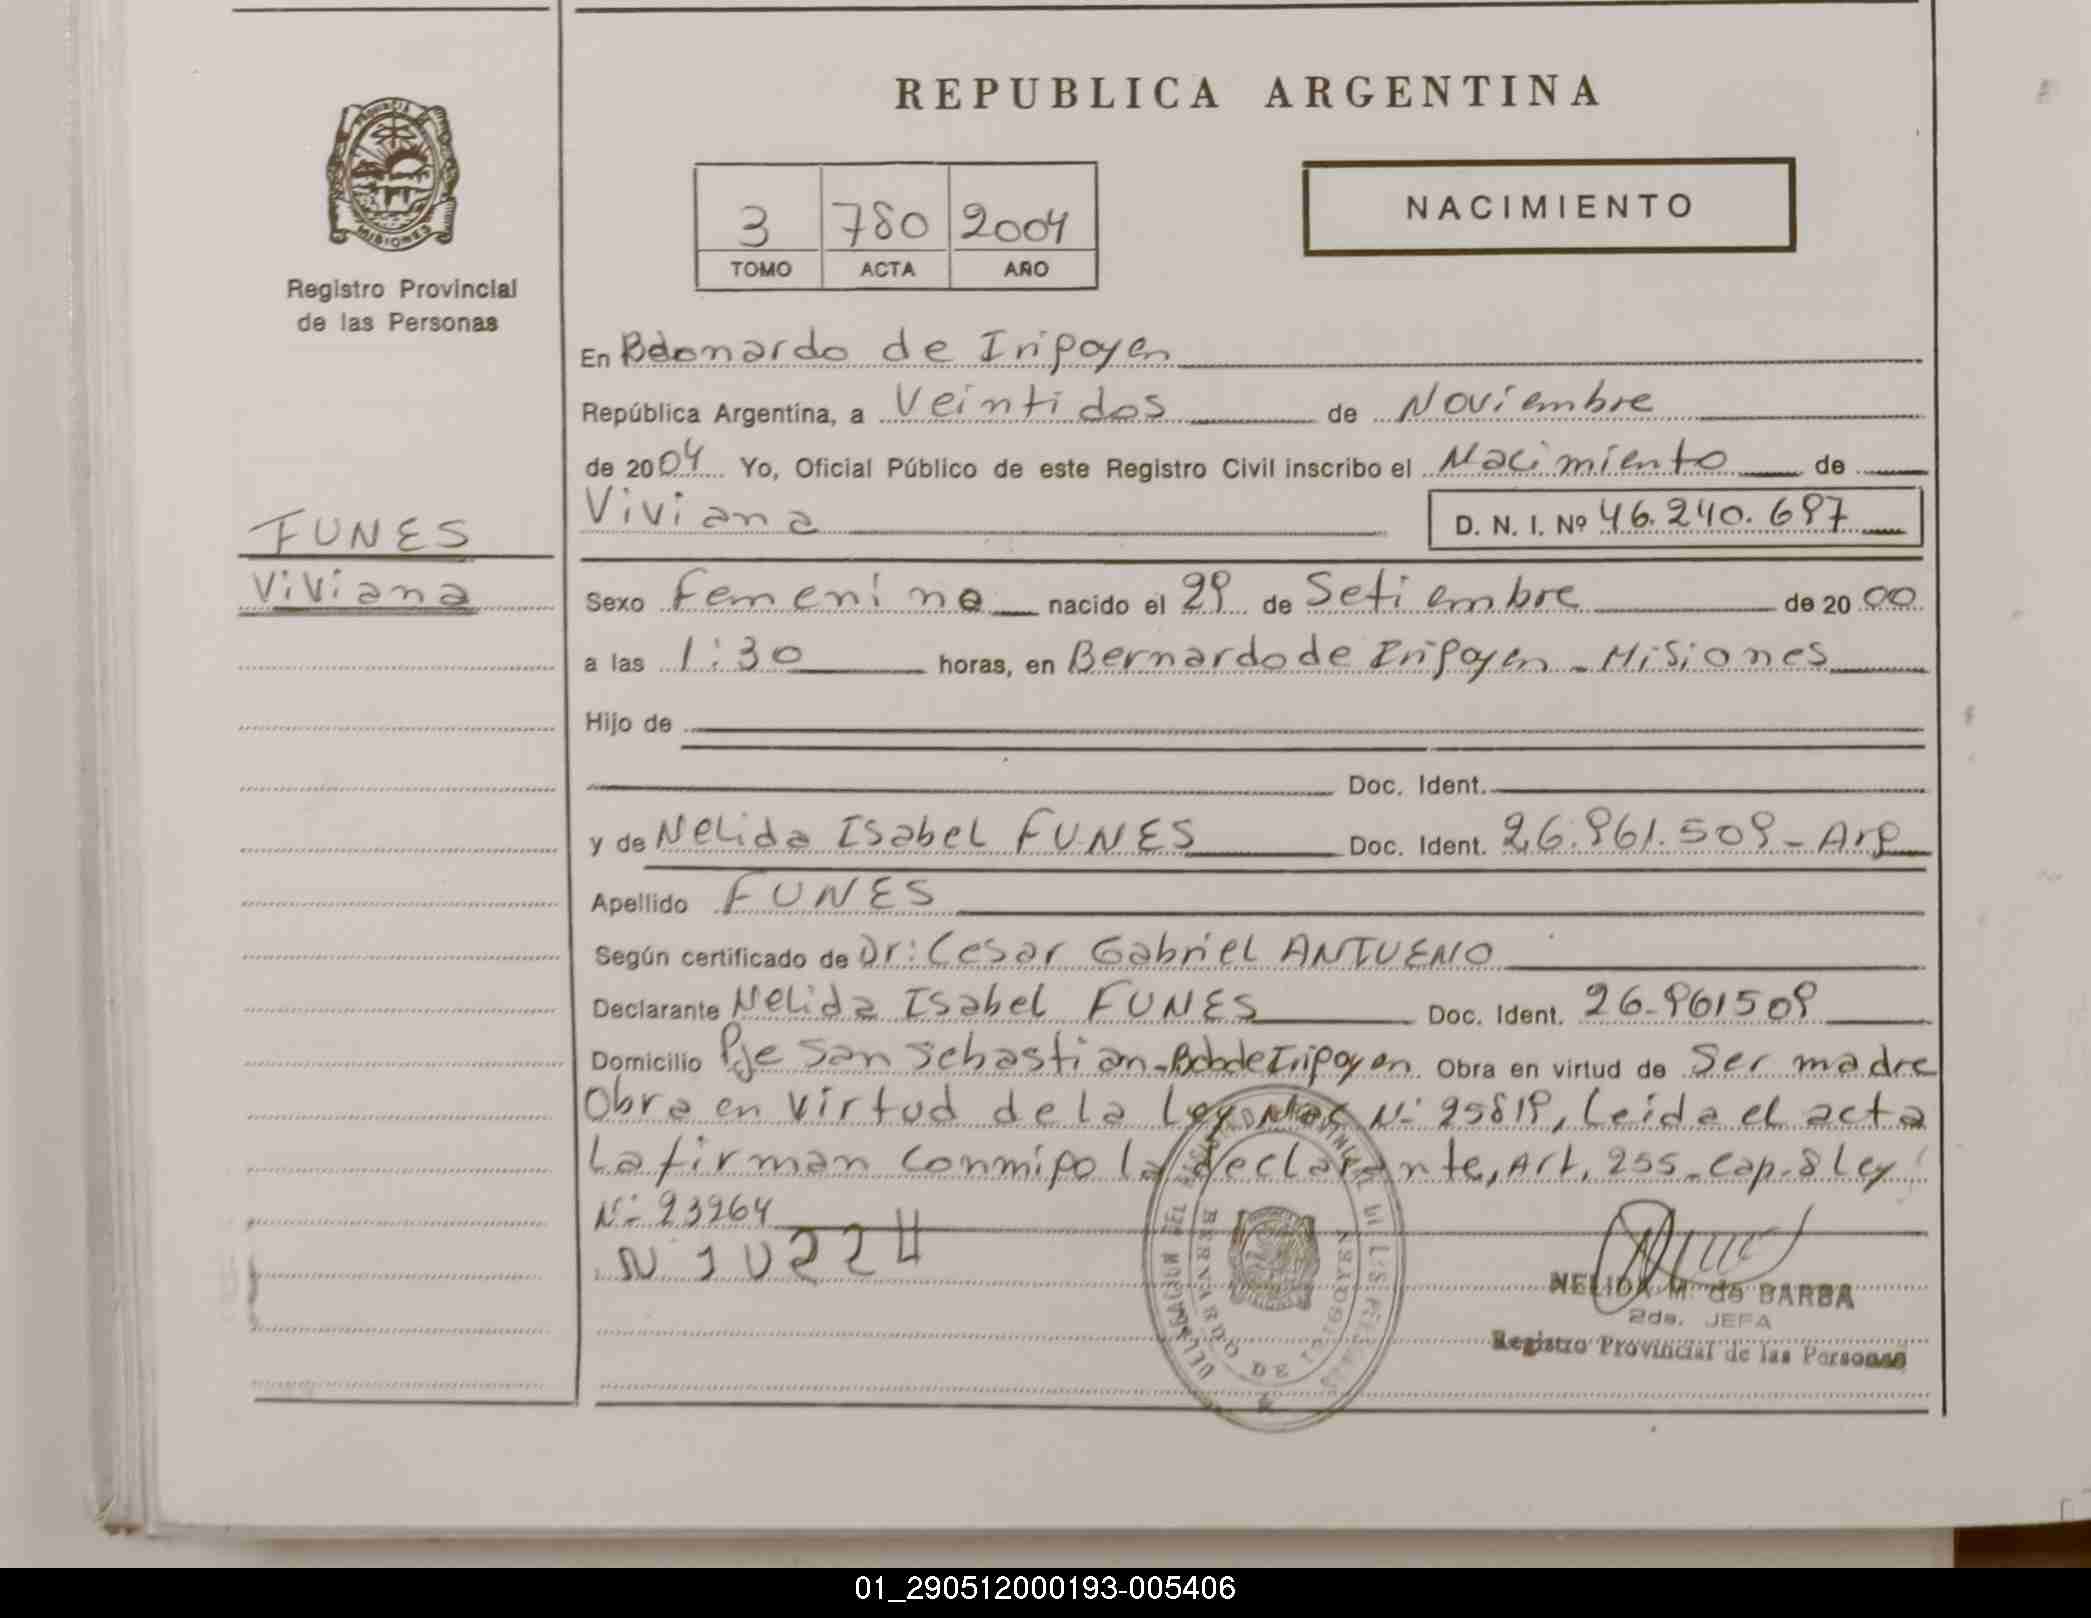 REPUBLICA ARGENTINA
PROVINCIA DE
MISIONES
Registro Provincial
de las Personas
NACIMIENTO
3 780 2004
TOMO ACTA AÑO
En Bdo Bernardo de Iripoyen
República Argentina, a Veintidos de Noviembre
de 2004 Yo, Oficial Público de este Registro Civil inscribo el Nacimiento de
Viviana D. N. I. Nº 46.240.697
FUNES
Viviana
Sexo Femenino nacido el 29 de Setiembre de 2000
a las 1:30 horas, en Bernardo de Iripoyen - Misiones
Hijo de
Doc. Ident.
y de Nelida Isabel FUNES Doc. Ident. 26.961.509 - Arg
Apellido FUNES
Según certificado de Dr: Cesar Gabriel ANTUENO
Declarante Nelida Isabel FUNES Doc. Ident. 26.961509
Domicilio Pje San Sebastian - Bdo de Iripoyen Obra en virtud de Ser madre
Obra en virtud de la Ley Nac Nº 25819, Leida el acta
La firman conmigo la declarante, Art. 255 - Cap. 8 Ley
Nº 23264
N 10224
BERNARDO DE IRIGOYEN
NELIDA M. de BARBA
2da. JEFA
Registro Provincial de las Personas
01_290512000193-005406